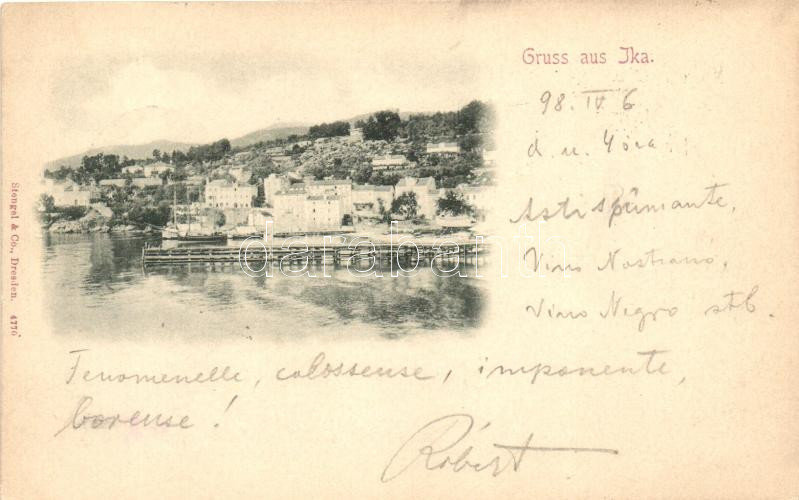 Gruss aus Ika.
98. IV 6
d. u. 4 óra
Asti spumante,
Vino Nostrano,
Vino Negro stb.
Fenomenelle, colossense, imponente,
borense!
Róbert
Stengel & Co., Dresden. 4770
darabanth